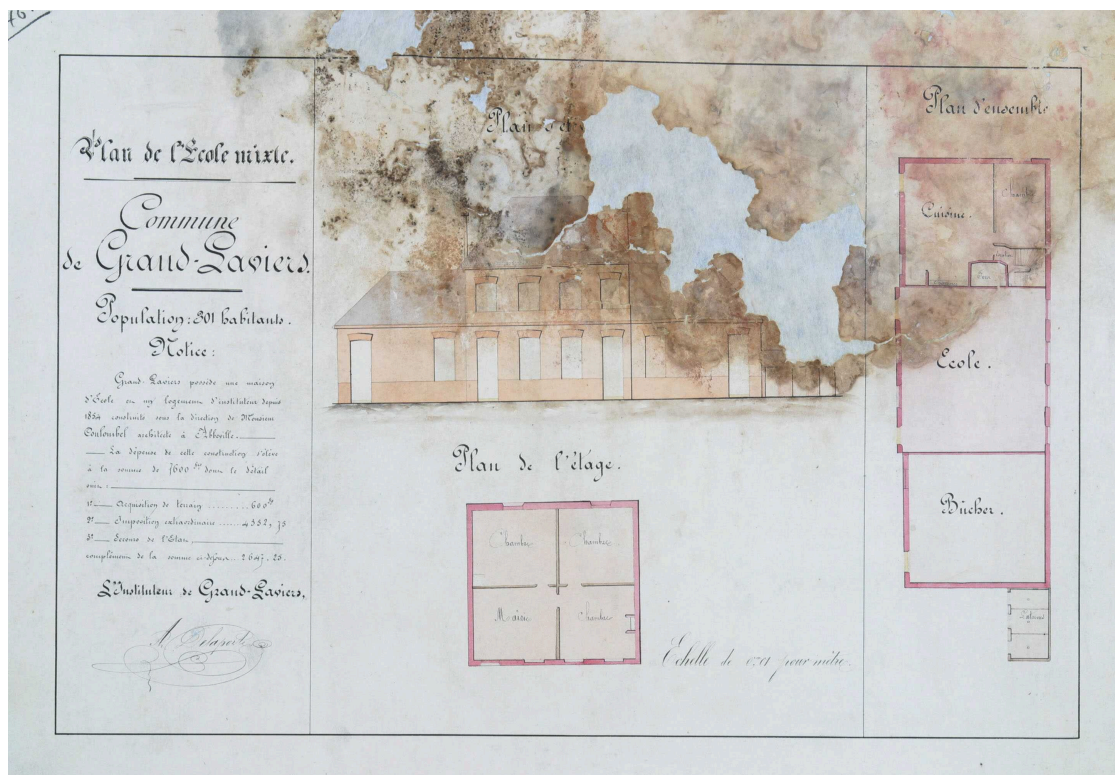 Plan de l'École mixte.
Commune
de Grand-Laviers.
Population: 301 habitants.
Notice:
Grand-Laviers possède une maison
d'École et logement d'instituteur depuis
1854 construite sous la direction de Monsieur
Coulombel architecte à Abbeville.
La dépense de cette construction s'élève
à la somme de 7600 dont le détail
suit:
1° Acquisition de terrain 600
2° Imposition extraordinaire 4352,75
3° Secours de l'État,
complément de la somme ci-dessus 2647.25.
L'Instituteur de Grand-Laviers,
A Delaporte
Plan
Plan de l'étage.
Chambre Chambre
Mairie Chambre
Echelle de 0m01 pour mètre.
Plan d'ensemble
Cuisine. Chambre
Four
École.
Bûcher.
Latrines